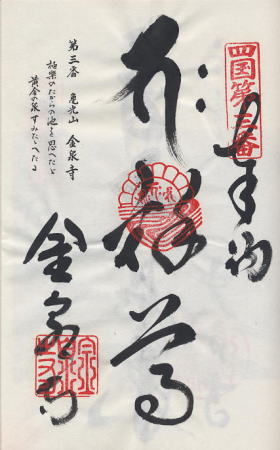 四国第三番
奉納
釋尊
第三番 亀光山 金泉寺
極楽のたからの池を思へたゞ
黄金の泉すみたゝへたる
金泉寺